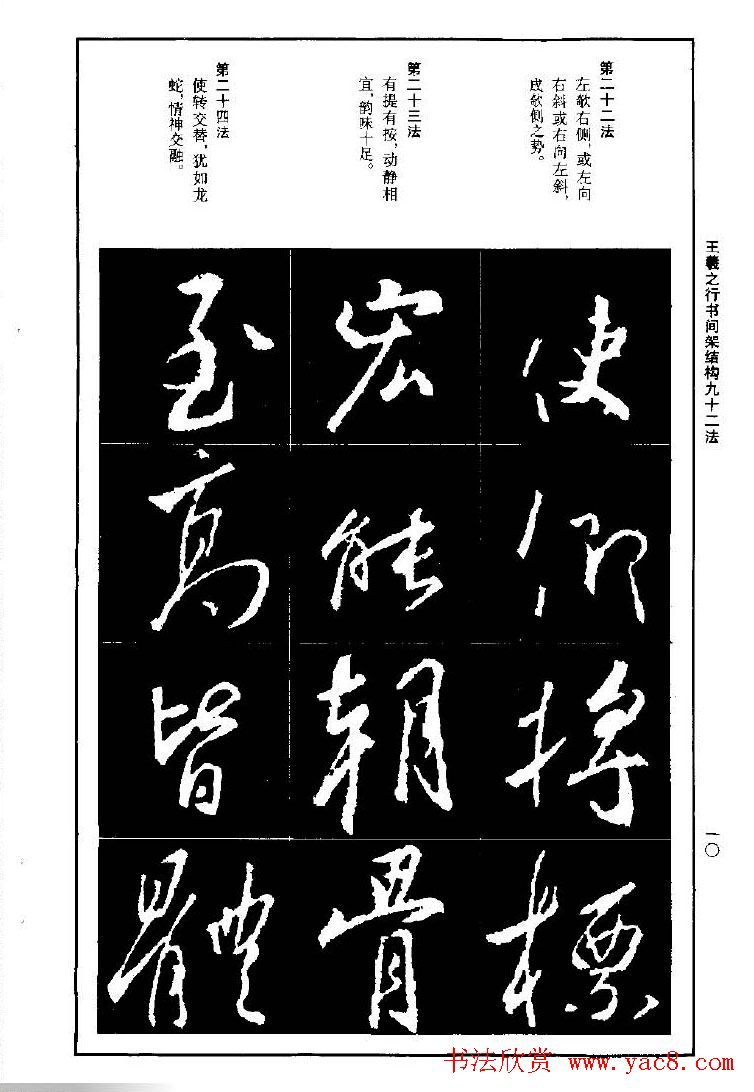 王羲之行书间架结构九十二法
一〇
第二十二法
左欹右侧，或左向
右斜或右向左斜，
成欹侧之势。
第二十三法
有提有按，动静相
宜，韵味十足。
第二十四法
使转交替，犹如龙
蛇，情神交融。
使仰将標
宏能朝骨
至高皆體
书法欣赏 www.yac8.com